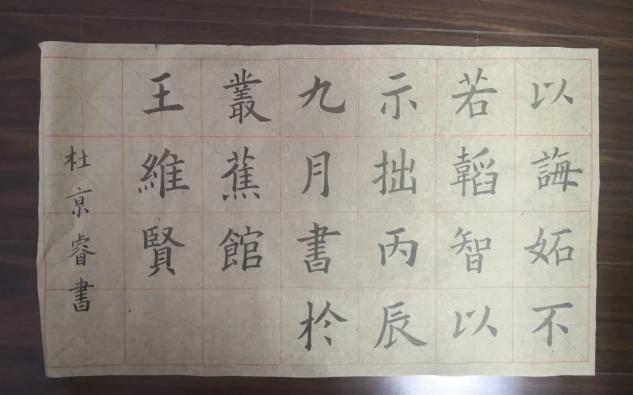 以誨妬不
若韜智以
示拙丙辰
九月書於
叢蕉館
王維賢
杜京睿書